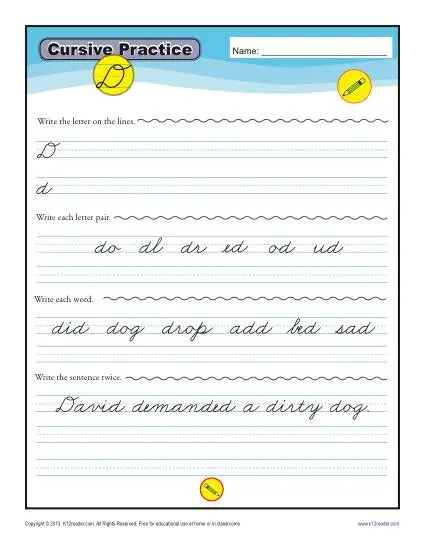 Cursive Practice
Name:
D
Write the letter on the lines.
D
d
Write each letter pair.
do dl dr ed od ud
Write each word.
did dog drop add bed sad
Write the sentence twice.
David demanded a dirty dog.
Copyright © 2013 K12reader.com. All Rights Reserved. Free for educational use at home or in classrooms.
www.k12reader.com